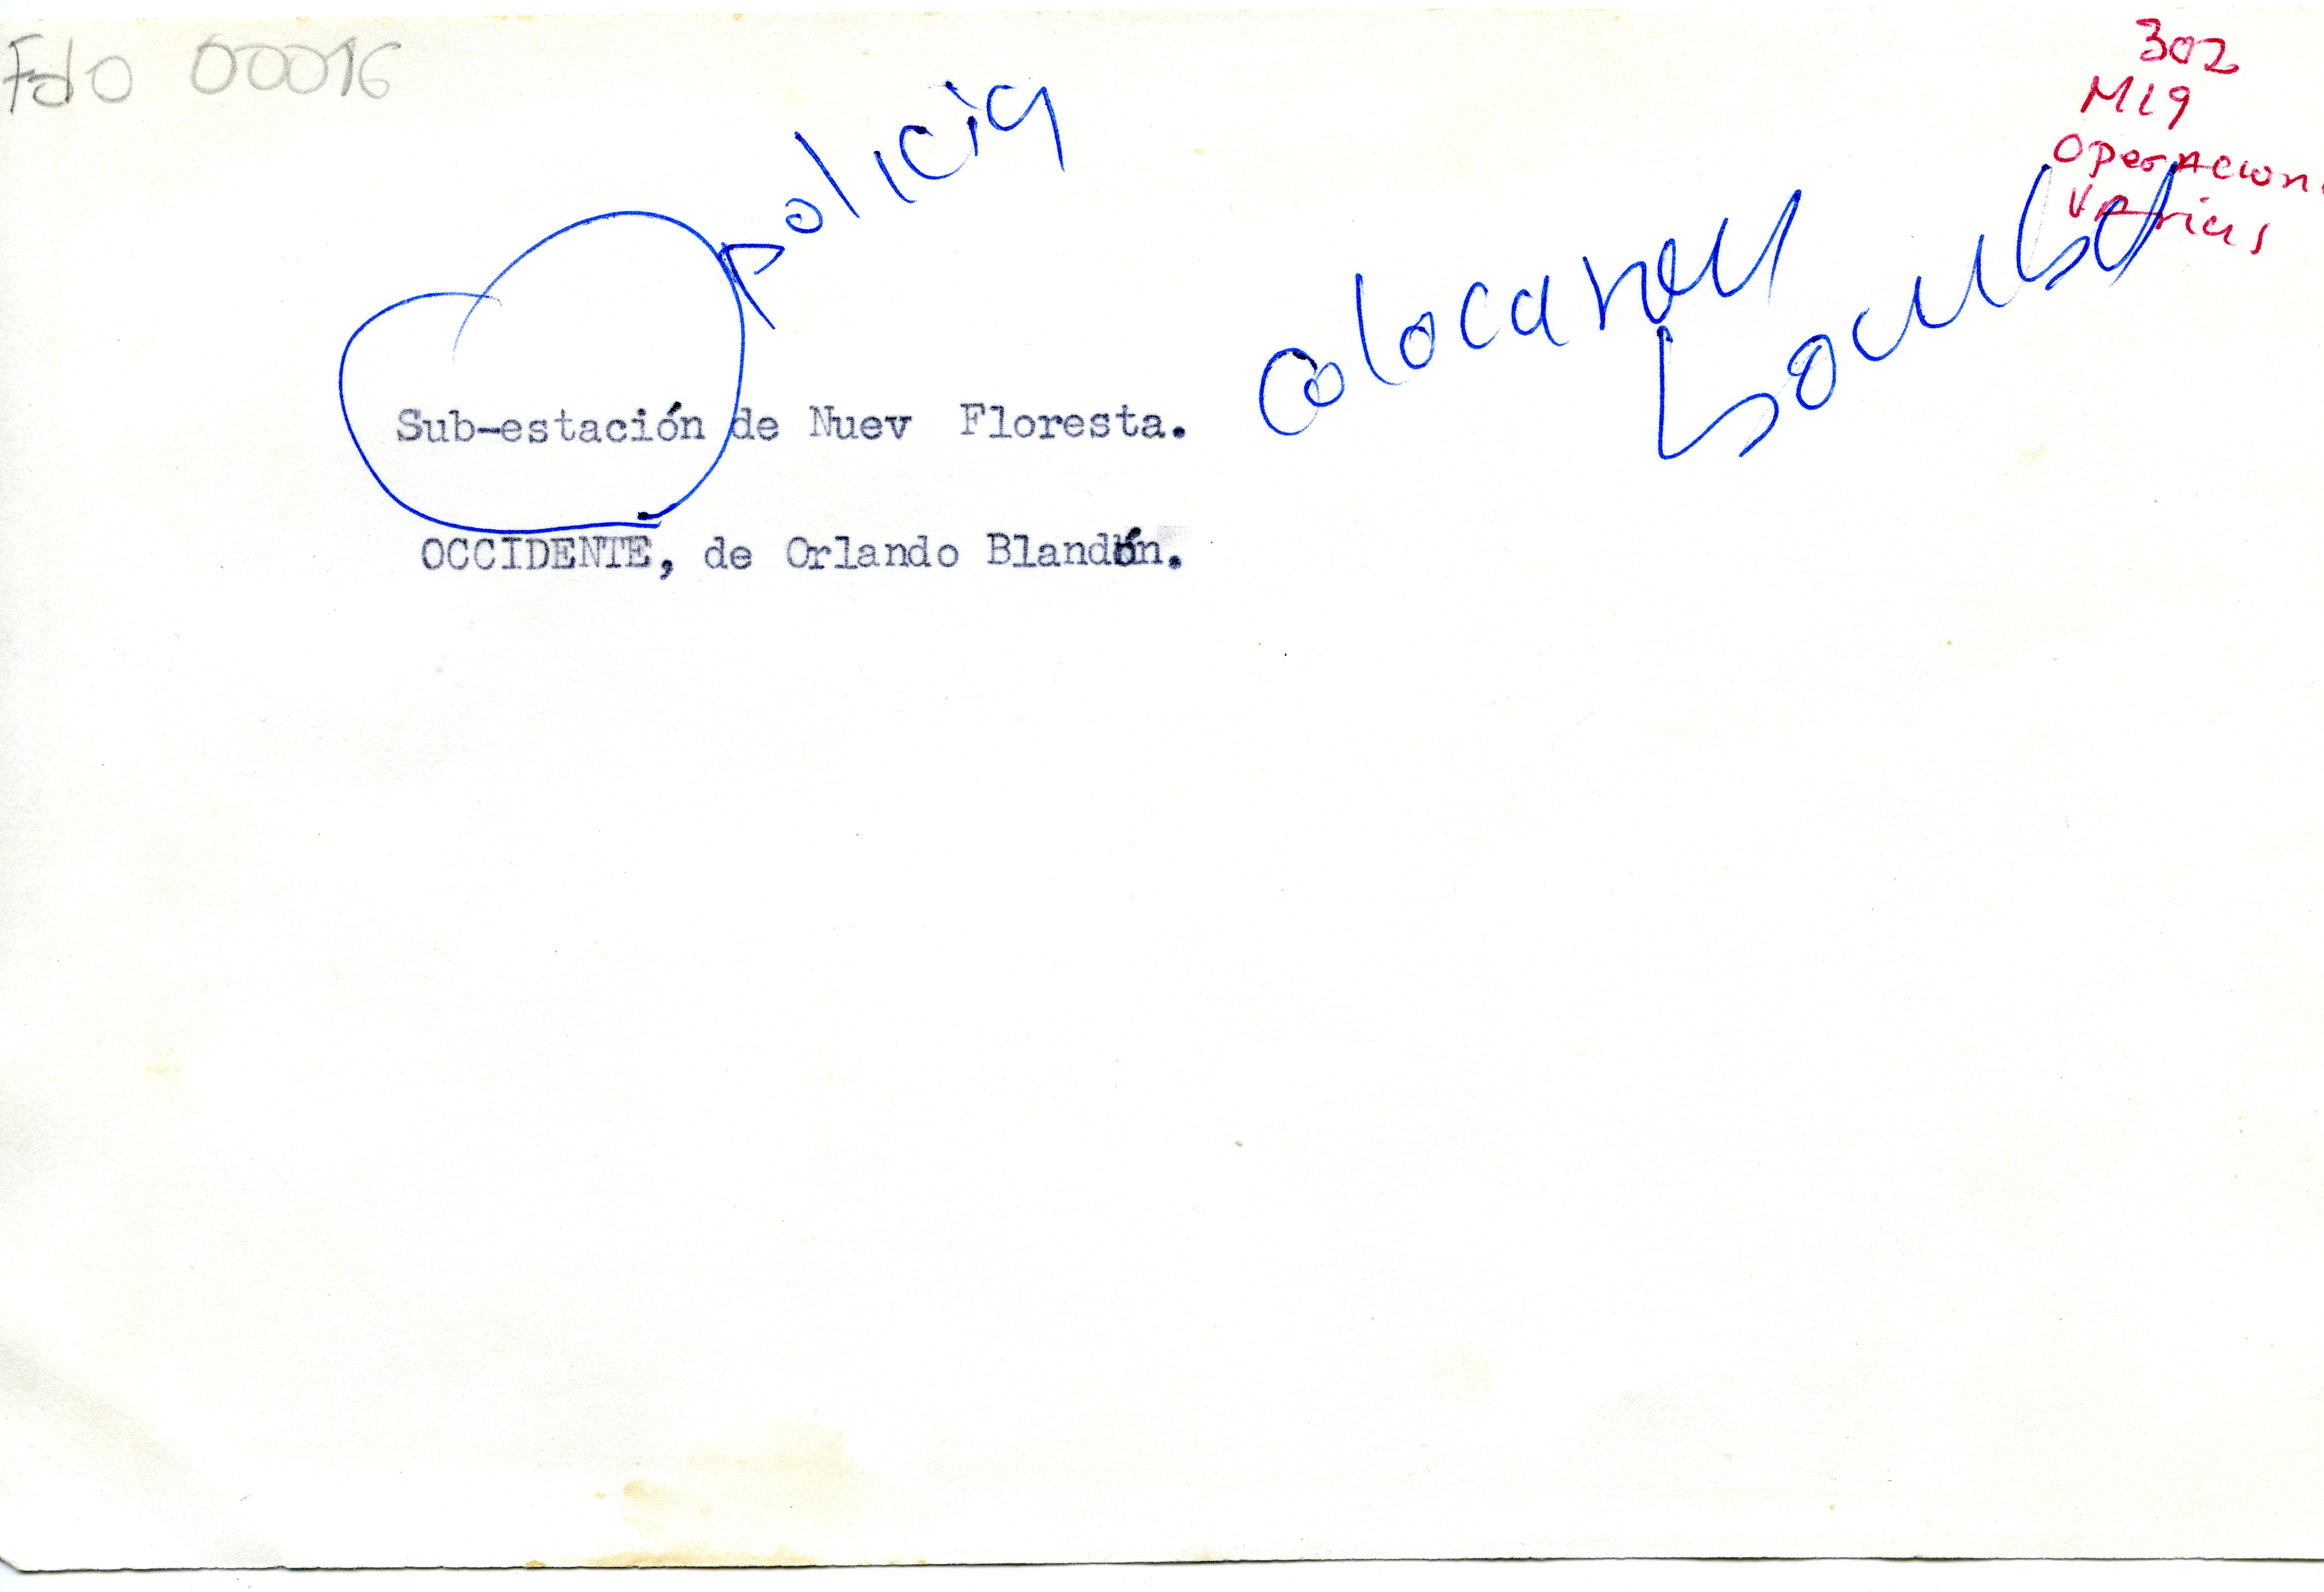 Fdo 00016
302
M19
Operacion
Varias
policia
colocaron
bomba
Sub-estación de Nuev Floresta.
OCCIDENTE, de Orlando Blandón.